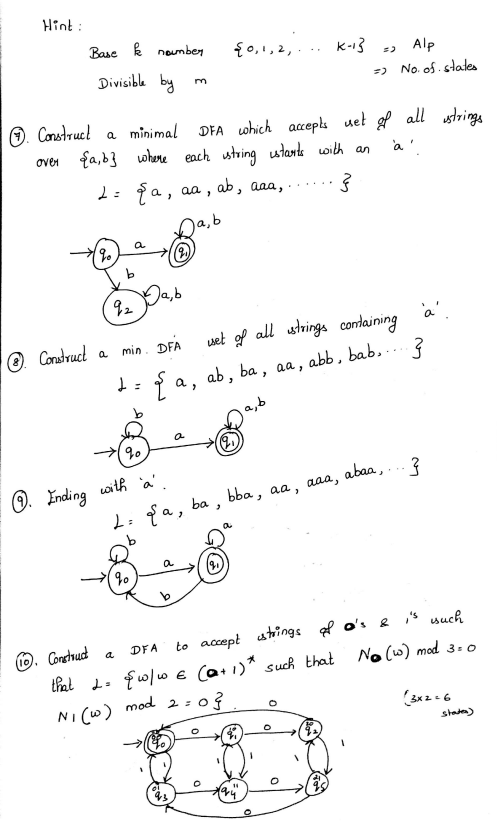 Hint :
Base k number {0,1,2, ... K-1} => Alp
Divisible by m => No. of. states
7. Construct a minimal DFA which accepts set of all strings
over {a,b} where each string starts with an 'a'.
L = {a, aa, ab, aaa, ......}
a,b
q0 a q1
b
q2 a,b
8. Construct a min. DFA set of all strings containing 'a'.
L = {a, ab, ba, aa, abb, bab, ...}
b a,b
q0 a q1
9. Ending with 'a'.
L = {a, ba, bba, aa, aaa, abaa, ...}
b a
q0 a q1
b
10. Construct a DFA to accept strings of 0's & 1's such
that L = {w/w ∈ (0+1)* such that N0(w) mod 3=0
N1(w) mod 2=0}.
(3x2=6
states)
0
q0 0 q1 0 q2
1 1 1 1 1 1
q3 0 q4 0 q5
0